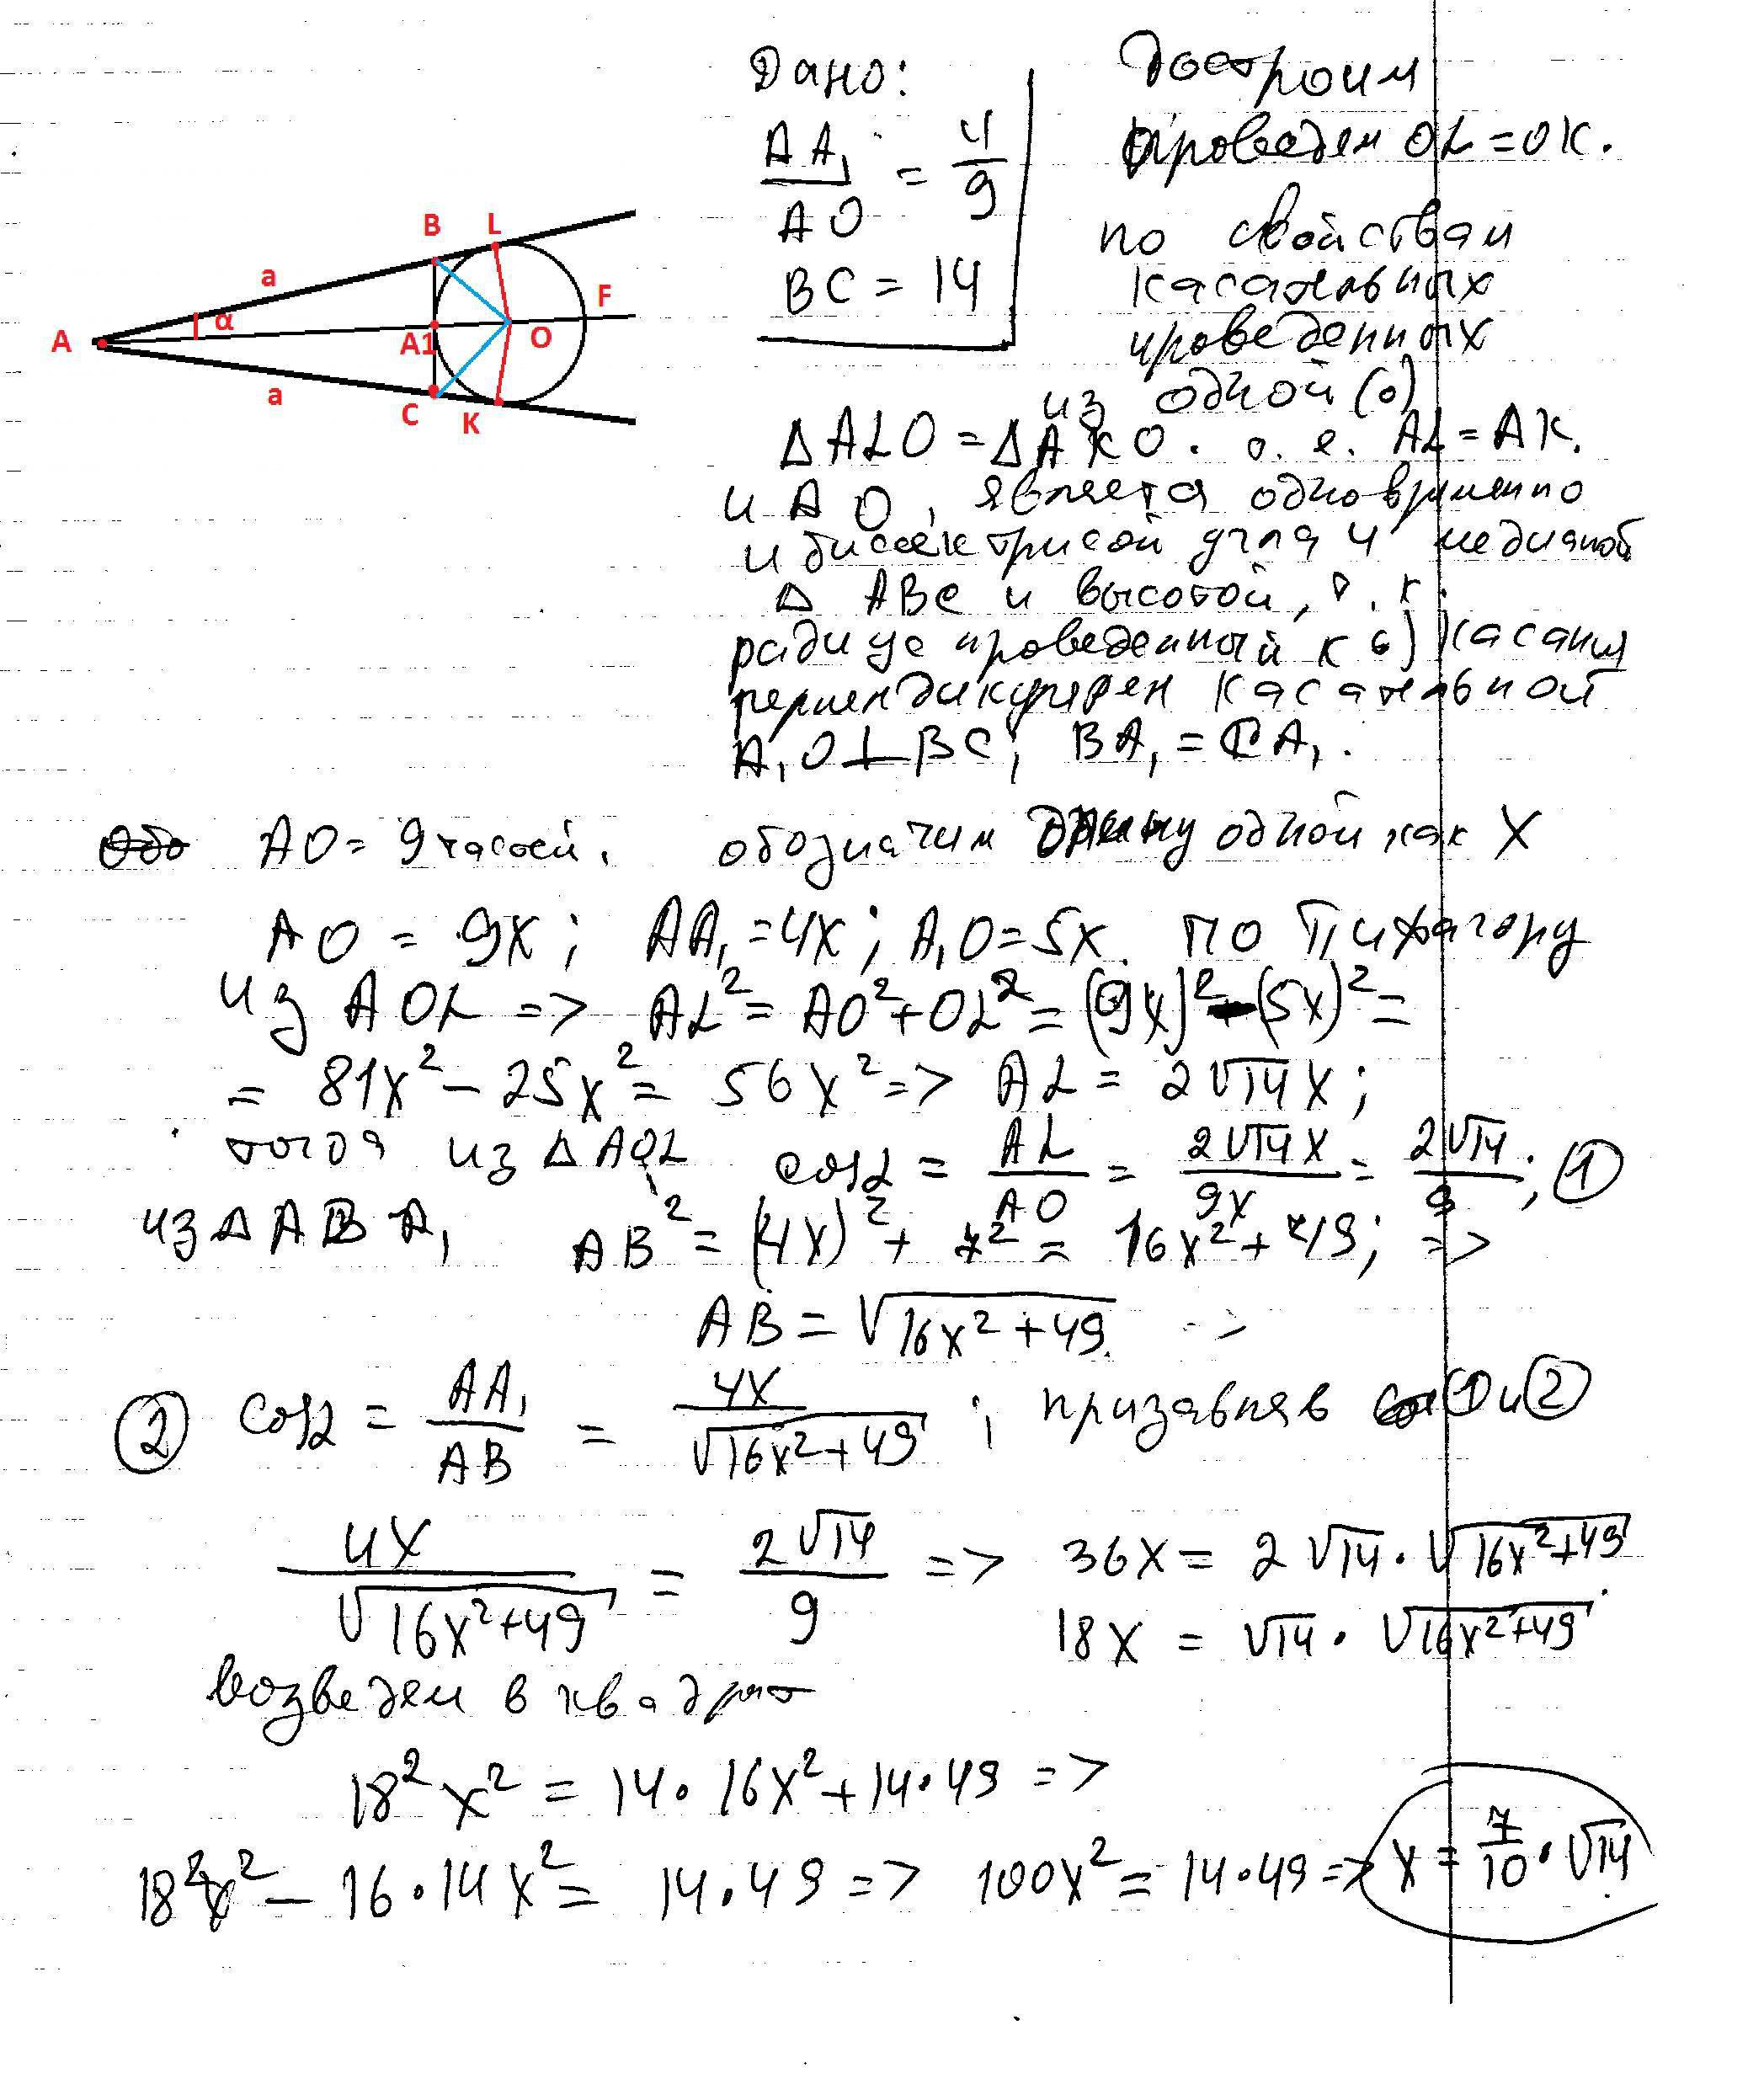 Дано:
AA₁/AO = 4/9
BC = 14
Достроим
проведем OL = OK.
по свойствам
касательных
проведенных
из одной (·)
B L
a F
α
A A1 O
a C K
ΔALO = ΔAKO. т. е. AL = AK.
и AO, является одновременно
и биссектрисой угла и медианой
Δ ABC и высотой, т. к.
радиус проведенный к (·) касания
перпендикулярен касательной
A₁O ⊥ BC; BA₁ = CA₁.
AO = 9 частей. обозначим длину одной как X
AO = 9x; AA₁ = 4x; A₁O = 5x. по Пифагору
из AOL => AL² = AO² + OL² = (9x)² - (5x)² =
= 81x² - 25x² = 56x² => AL = 2√14 x;
тогда из Δ AOL cos α = AL/AO = 2√14 x/9x = 2√14/9; ①
из Δ ABA₁ AB² = (4x)² + 7² = 16x² + 49; =>
AB = √(16x² + 49) =>
② cos α = AA₁/AB = 4x/√(16x² + 49); приравняв ① и ②
4x/√(16x² + 49) = 2√14/9 => 36x = 2√14 · √(16x² + 49)
18x = √14 · √(16x² + 49)
возведем в квадрат
18²x² = 14 · 16x² + 14 · 49 =>
18²x² - 16 · 14x² = 14 · 49 => 100x² = 14 · 49 => x = 7/10 · √14